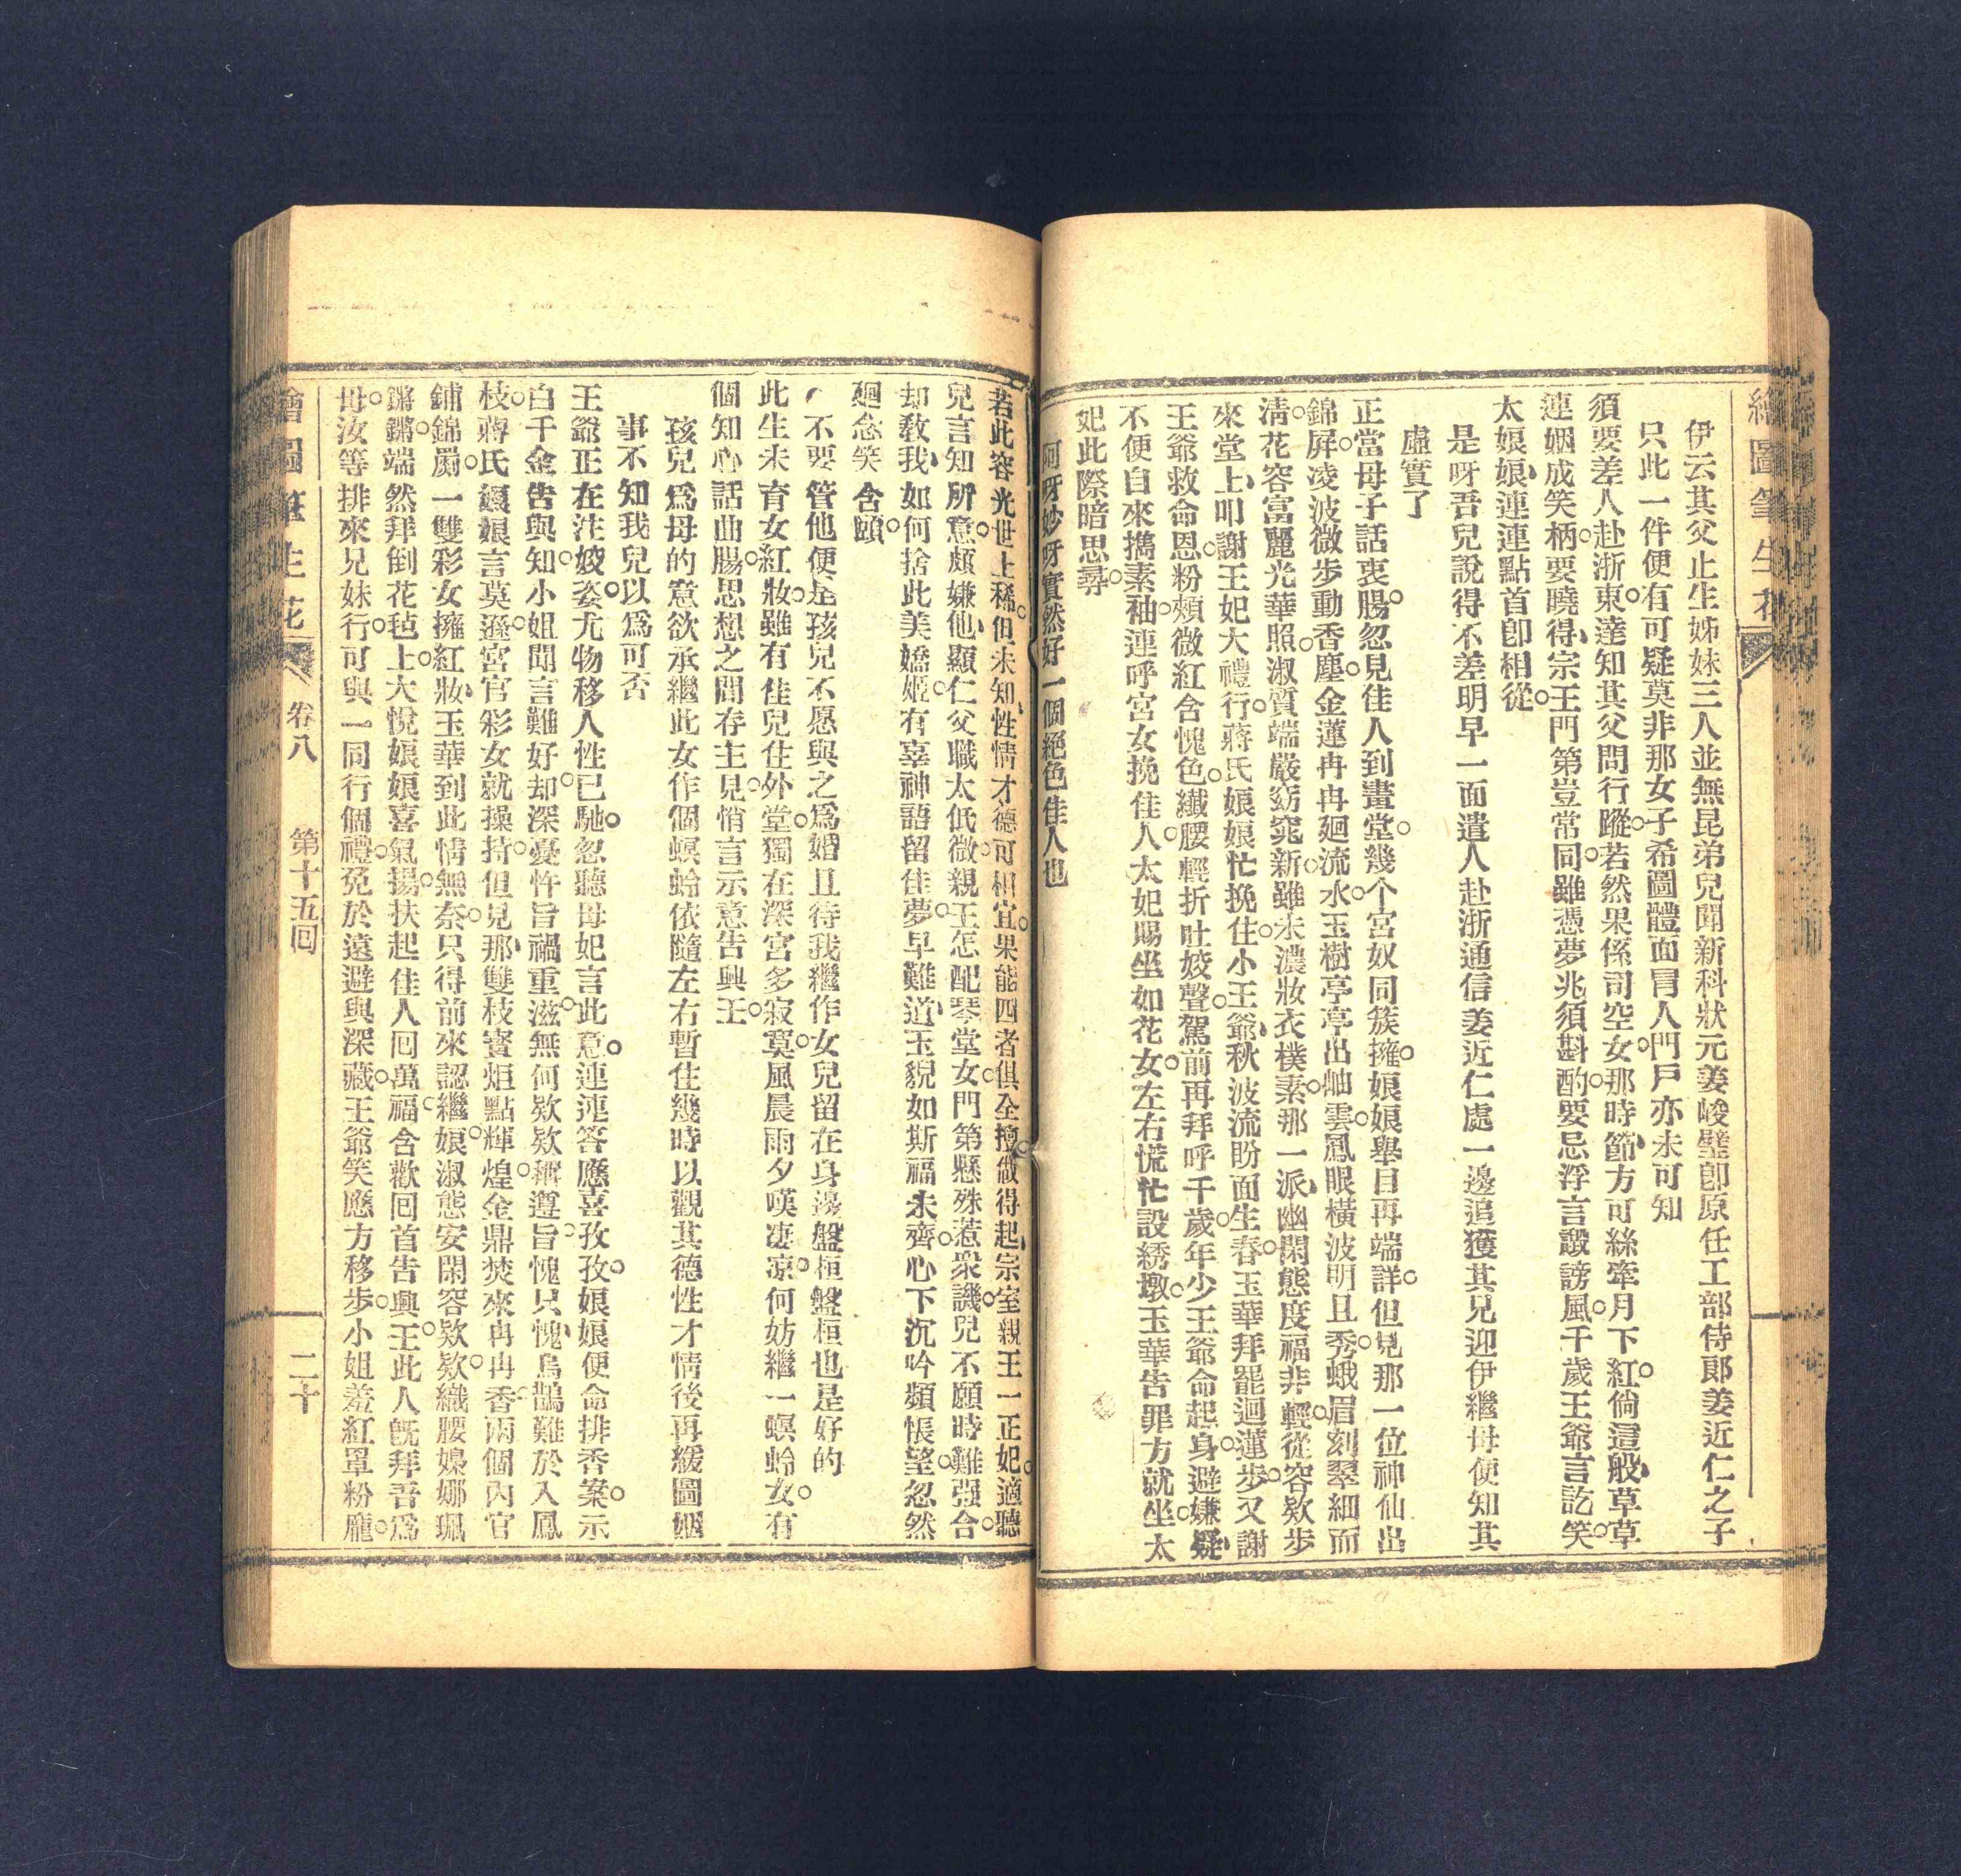 繪圖筆生花
伊云其父止生姊妹三人並無昆弟兒聞新科狀元姜峻璧卽原任工部侍郎姜近仁之子
只此一件便有可疑莫非那女子希圖體面冒人門戶亦未可知
須要差人赴浙東達知其父問行蹤若然果係司空女那時節方可絲牽月下紅倘這般草草
連姻成笑柄要曉得宗王門第豈常同雖憑夢兆須斟酌要忌浮言譭謗風千歲王爺言訖笑
太娘娘連連點首卽相從
是呀吾兒說得不差明早一面遣人赴浙通信姜近仁處一邊追獲其兄迎伊繼母便知其
虛實了
正當母子話衷腸忽見佳人到畫堂幾个宮奴同簇擁娘娘舉目再端詳但見那一位神仙出
錦屏凌波微步動香塵金蓮冉冉廻流水玉樹亭亭出岫雲鳳眼橫波明且秀蛾眉刻翠細而
清花容富麗光華照淑質端嚴窈窕新雖未濃妝衣樸素那一派幽閑態度福非輕從容欵步
來堂上叩謝王妃大禮行蔣氏娘娘忙挽住小王爺秋波流盼面生春玉華拜罷迴蓮步又謝
王爺救命恩粉頰微紅含愧色纖腰輕折吐姣聲駕前再拜呼千歲年少王爺命起身避嫌疑
不便自來擕素袖連呼宮女挽佳人太妃賜坐如花女左右慌忙設綉墩玉華告罪方就坐太
妃此際暗思尋
阿呀妙呀實然好一個絕色佳人也
若此容光世上稀但未知性情才德可相宜果能四者俱全擅做得起宗室親王一正妃適聽
兒言知所意頗嫌他顯仁父職太低微親王怎配琴堂女門第懸殊惹衆譏兒不願時難强合
却敎我如何捨此美嬌姬有辜神語留佳夢早難道玉貌如斯福未齊心下沉吟頻悵望忽然
廻念笑含頤
不要管他便是孩兒不愿與之爲婚且待我繼作女兒留在身邊盤桓盤桓也是好的
此生未育女紅妝雖有佳兒住外堂獨在深宮多寂寞風晨雨夕嘆凄凉何妨繼一螟蛉女有
個知心話曲腸思想之間存主見悄言示意告興王
孩兒爲母的意欲承繼此女作個螟蛉依隨左右暫住幾時以觀其德性才情後再緩圖姻
事不知我兒以爲可否
王爺正在注姣姿尤物移人性已馳忽聽母妃言此意連連答應喜孜孜娘娘便命排香案示
白千金告與知小姐聞言難好却深憂忤旨禍重滋無何欵欵稱遵旨愧只愧烏鵲難於入鳳
枝蔣氏娘娘言莫遜宮官彩女就操持但見那雙枝寳炬點輝煌金鼎焚來冉冉香兩個內官
鋪錦罽一雙彩女擁紅妝玉華到此情無奈只得前來認繼娘淑態安閑容欵欵纖腰嬝娜珮
鏘鏘端然拜倒花毡上大悅娘娘喜氣揚扶起佳人回萬福含歡回首告興王此人旣拜吾爲
母汝等排來兄妹行可與一同行個禮免於遠避與深藏王爺笑應方移步小姐羞紅罩粉龐
繪圖筆生花 卷八 第十五回 二十